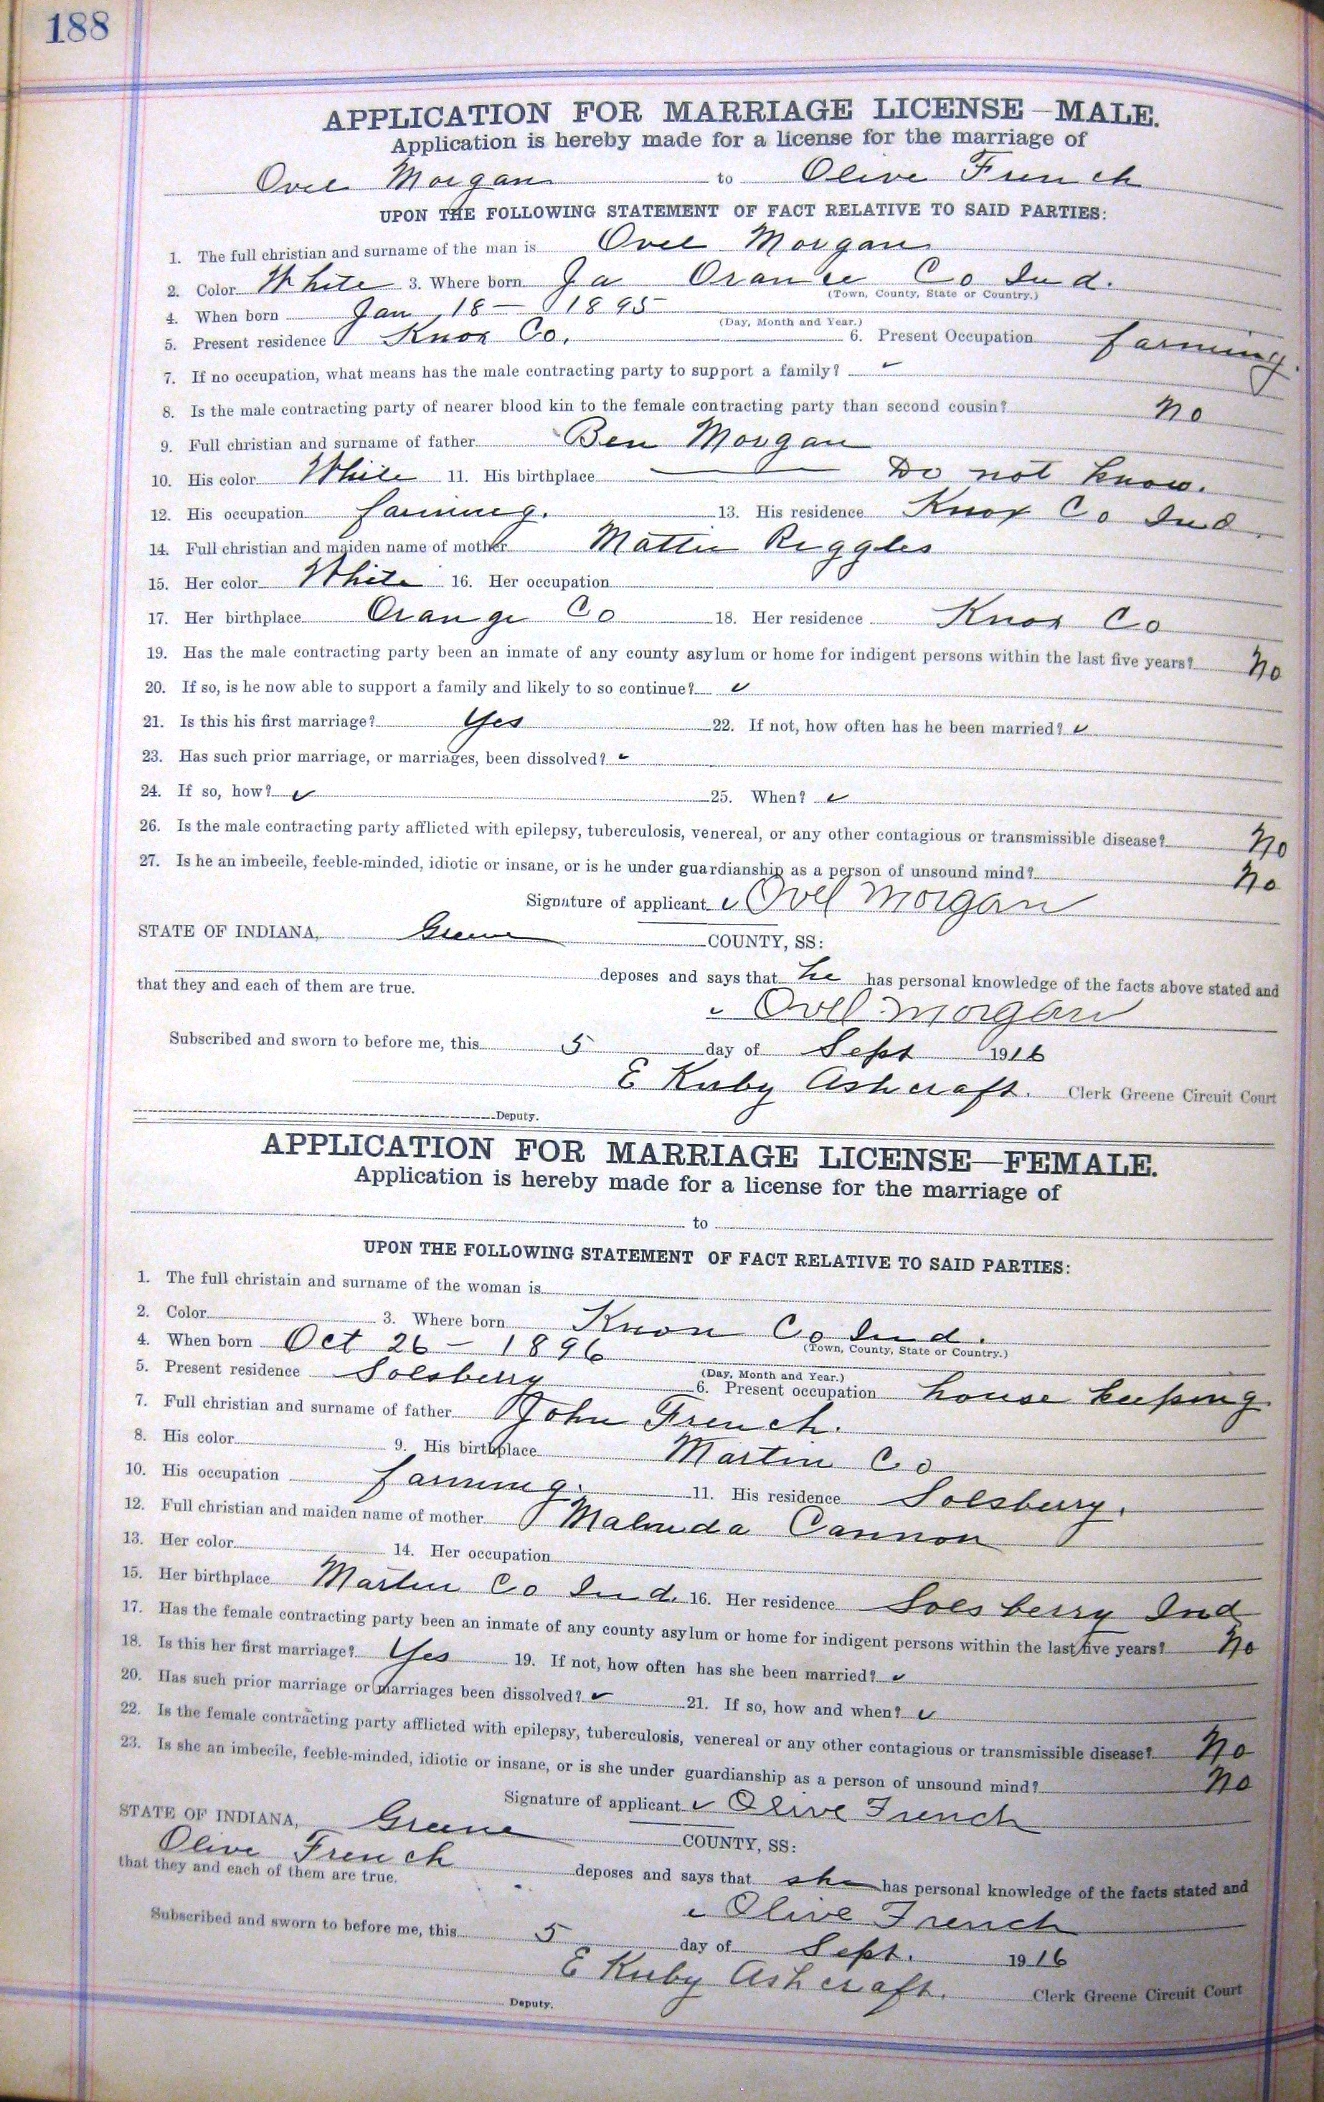 188
APPLICATION FOR MARRIAGE LICENSE—MALE.
Application is hereby made for a license for the marriage of
Ovel Morgan to Olive French
UPON THE FOLLOWING STATEMENT OF FACT RELATIVE TO SAID PARTIES:
1. The full christian and surname of the man is Ovel Morgan
2. Color White 3. Where born Orange Co Ind.
(Town, County, State or Country.)
4. When born Jan 18 — 1895
(Day, Month and Year.)
5. Present residence Knox Co. 6. Present Occupation farming.
7. If no occupation, what means has the male contracting party to support a family? ✓
8. Is the male contracting party of nearer blood kin to the female contracting party than second cousin? No
9. Full christian and surname of father Ben Morgan
10. His color White 11. His birthplace — Do not know.
12. His occupation farming. 13. His residence Knox Co Ind
14. Full christian and maiden name of mother Mattie Riggles
15. Her color White 16. Her occupation
17. Her birthplace Orange Co 18. Her residence Knox Co
19. Has the male contracting party been an inmate of any county asylum or home for indigent persons within the last five years? No
20. If so, is he now able to support a family and likely to so continue? ✓
21. Is this his first marriage? Yes 22. If not, how often has he been married? ✓
23. Has such prior marriage, or marriages, been dissolved? ✓
24. If so, how? ✓ 25. When? ✓
26. Is the male contracting party afflicted with epilepsy, tuberculosis, venereal, or any other contagious or transmissible disease? No
27. Is he an imbecile, feeble-minded, idiotic or insane, or is he under guardianship as a person of unsound mind? No
Signature of applicant ✓ Ovel Morgan
STATE OF INDIANA, Greene COUNTY, SS:
deposes and says that he has personal knowledge of the facts above stated and
that they and each of them are true.
✓ Ovel Morgan
Subscribed and sworn to before me, this 5 day of Sept 1916
E Kirby Ashcraft. Clerk Greene Circuit Court
Deputy.
APPLICATION FOR MARRIAGE LICENSE—FEMALE.
Application is hereby made for a license for the marriage of
to
UPON THE FOLLOWING STATEMENT OF FACT RELATIVE TO SAID PARTIES:
1. The full christain and surname of the woman is
2. Color 3. Where born Knox Co Ind.
(Town, County, State or Country.)
4. When born Oct 26 — 1896
(Day, Month and Year.)
5. Present residence Solsberry 6. Present occupation house keeping
7. Full christian and surname of father John French.
8. His color 9. His birthplace Martin Co
10. His occupation farming. 11. His residence Solsberry.
12. Full christian and maiden name of mother Cannon
13. Her color 14. Her occupation
15. Her birthplace Martin Co Ind. 16. Her residence Solsberry Ind
17. Has the female contracting party been an inmate of any county asylum or home for indigent persons within the last five years? No
18. Is this her first marriage? Yes 19. If not, how often has she been married? ✓
20. Has such prior marriage or marriages been dissolved? ✓ 21. If so, how and when? ✓
22. Is the female contracting party afflicted with epilepsy, tuberculosis, venereal or any other contagious or transmissible disease? No
23. Is she an imbecile, feeble-minded, idiotic or insane, or is she under guardianship as a person of unsound mind? No
Signature of applicant ✓ Olive French
STATE OF INDIANA, Greene COUNTY, SS:
Olive French deposes and says that she has personal knowledge of the facts stated and
that they and each of them are true.
✓ Olive French
Subscribed and sworn to before me, this 5 day of Sept. 1916
E Kirby Ashcraft. Clerk Greene Circuit Court
Deputy.